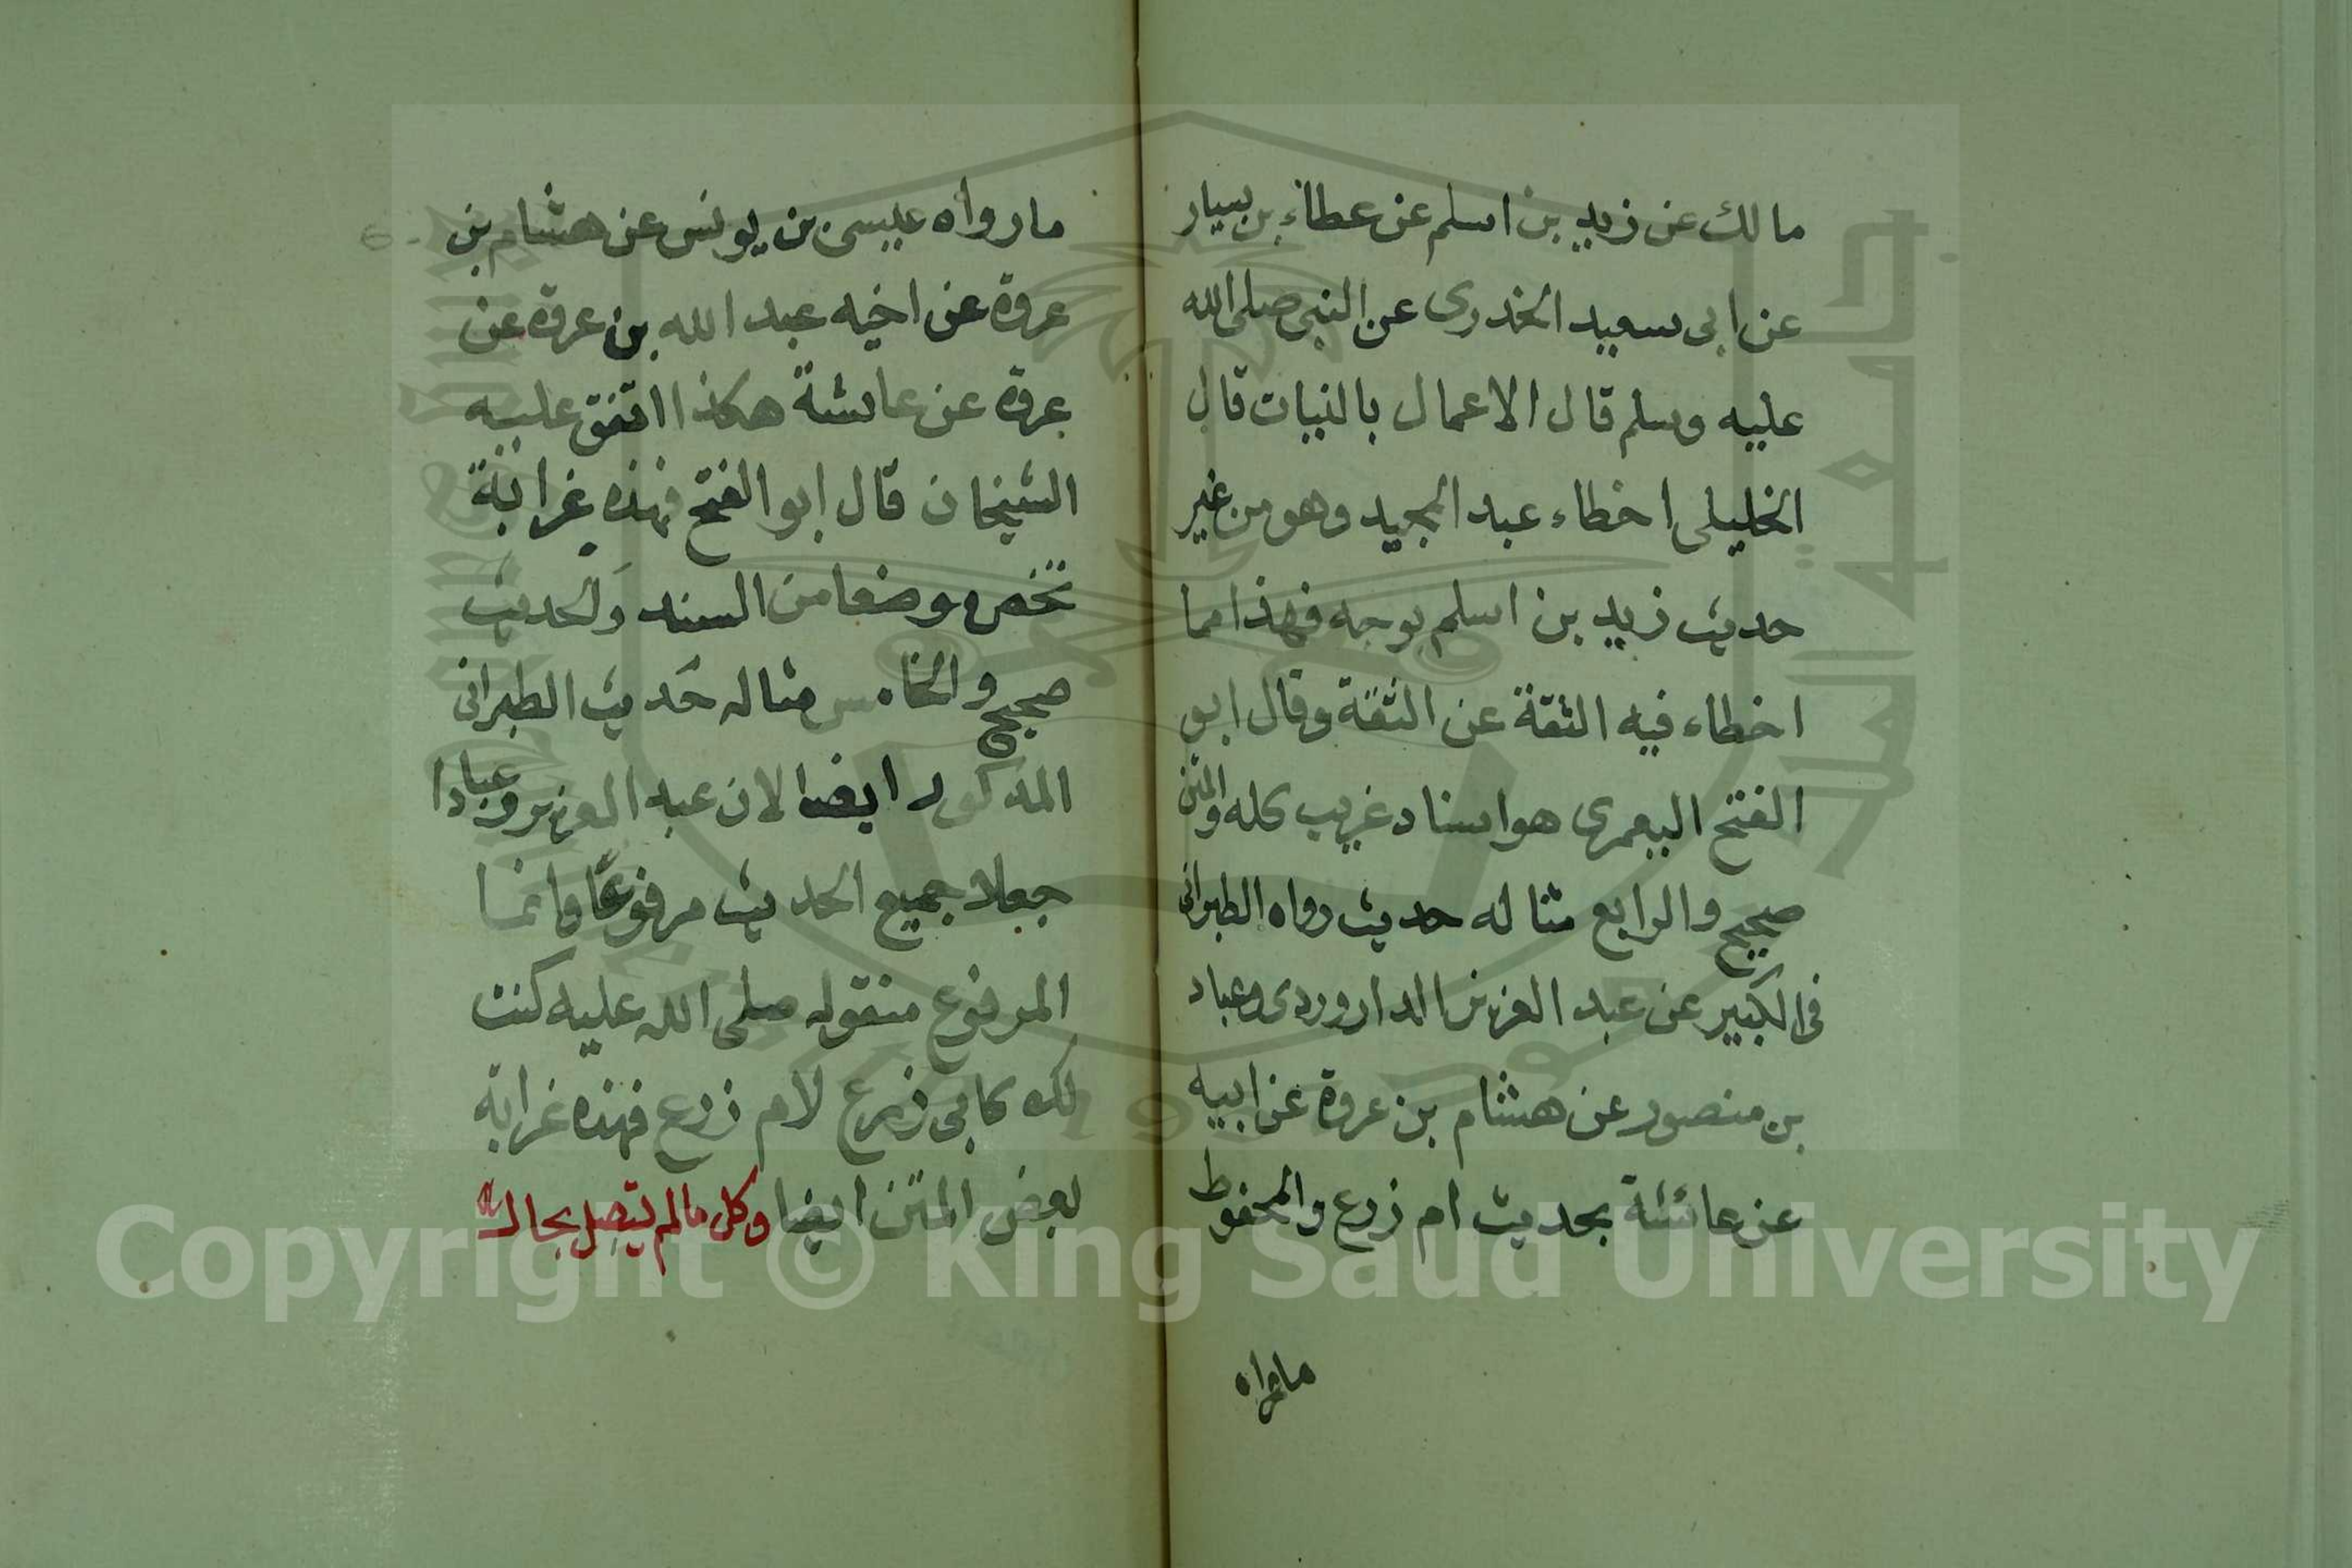 مالك عن زيد بن اسلم عن عطاء بن يسار
عن ابى سعيد الخدرى عن النبى صلى الله
عليه وسلم قال الاعمال بالنيات قال
الخليلى اخطاء عبد المجيد وهو من غير
حديث زيد بن اسلم بوجه فهذا مما
اخطاء فيه الثقة عن الثقة وقال ابو
الفتح اليعمرى هو اسناد غريب كله والمتن
صحيح والرابع مثاله حديث رواه الطبرانى
فى الكبير عن عبد العزيز الداروردى وعباد
بن منصور عن هشام بن عروة عن ابيه
عن عائشة بحديث ام زرع والمحفوظ
مارواه
مارواه عيسى بن يونس عن هشام بن
عروة عن اخيه عبد الله بن عروة عن
عروة عن عائشة هكذا اتفق عليه
الشيخان قال ابو الفتح فهذه غرابة
تخص موضعا من السند والحديث
صحيح والخامس مثاله حديث الطبرانى
المذكور ايضا لان عبد العزيز وعبادا
جعلا جميع الحديث مرفوعا وانما
المرفوع منقوله صلى الله عليه كنت
لك كابى زرع لام زرع فهذه غرابة
بعض المتن ايضا وكل مالم يتصل بحال
Copyright © King Saud University